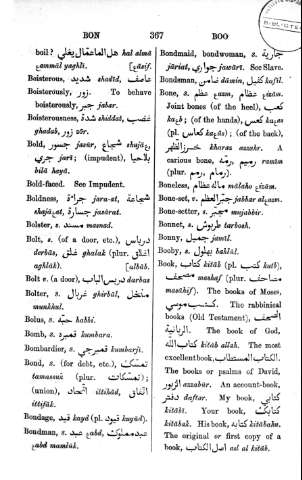 BON 367 BOO
boil? هل الماء قال يغلي hal almá
ɛammál yaghlí. [ɛásif.
Boisterous, شديد shadíd, عاصف
Boisterously, زور. To behave
boisterously, جبر jabar.
Boisterousness, شدة shiddat, غضب
ghadab, زور zór.
Bold, جسور jasúr, شجاع shajáɛ,
جري jarí; (impudent), بلا حيا
bilá hayá.
Bold-faced. See Impudent.
Boldness, جراة jara-at, شجاعة
shajáɛat, جسارة jasárat.
Bolster, s. مسند masnad.
Bolt, s. (of a door, etc.), درباس
derbás, غلق ghalak (plur. اغلاق
aghlák). [albáb.
Bolt v. (a door), درباس الباب darbas
Bolter, s. غربال ghirbál, منخل
munkhul.
Bolus, s. حبّه habbi.
Bomb, s. قمبره kumbara.
Bombardier, s. قمبرجي kumbarjí.
Bond, s. (for debt, etc.), تمسك
tamassuk (plur. تمسكات);
(union), اتحاد ittihád, اتفاق
ittifák.
Bondage, قيد kayd (pl. قيود kuyúd).
Bondman, s. عبد ɛabd, عبد مملوك
ɛabd mamlúk.
Bondmaid, bondwoman, s. جارية
járiat, جواري jawárí. See Slave.
Bondsman, ضامن dámin, كفيل kafíl.
Bone, s. عظم ɛazm, عظام ɛizám.
Joint bones (of the heel), كعب
kaɛb; (of the hands), كعاس
(pl. كعس kaɛás); (of the back),
خرز الظهر kharas azzuhr. A
carious bone, رميم, رمّه ramím
(plur. رمام, رميم).
Boneless, ملا له عظام málaho ɛizám.
Bone-set, v. جبر العظم jabhar alɛazm.
Bone-setter, s. مجبر mujabbir.
Bonnet, s. طربوش tarbosh.
Bonny, جميل jamíl.
Booby, s. بهلول bahlúl.
Book, كتاب kitáb (pl. كتب kutb).
مصحف mashaf (plur. مصاحف
masáhif). The books of Moses,
كتب موسي. The rabbinical
books (Old Testament), الصحف
الربانية. The book of God,
كتاب الله kitáb allah. The most
excellent book, الكتاب المستطاب.
The books or psalms of David,
الزبور azzabúr. An account-book,
دفتر daftar. My book, كتابي
kitábí. Your book, كتابك
kitábak. His book, كتابه kitábahu.
The original or first copy of a
book, اصل الكتاب asl al kitáb.